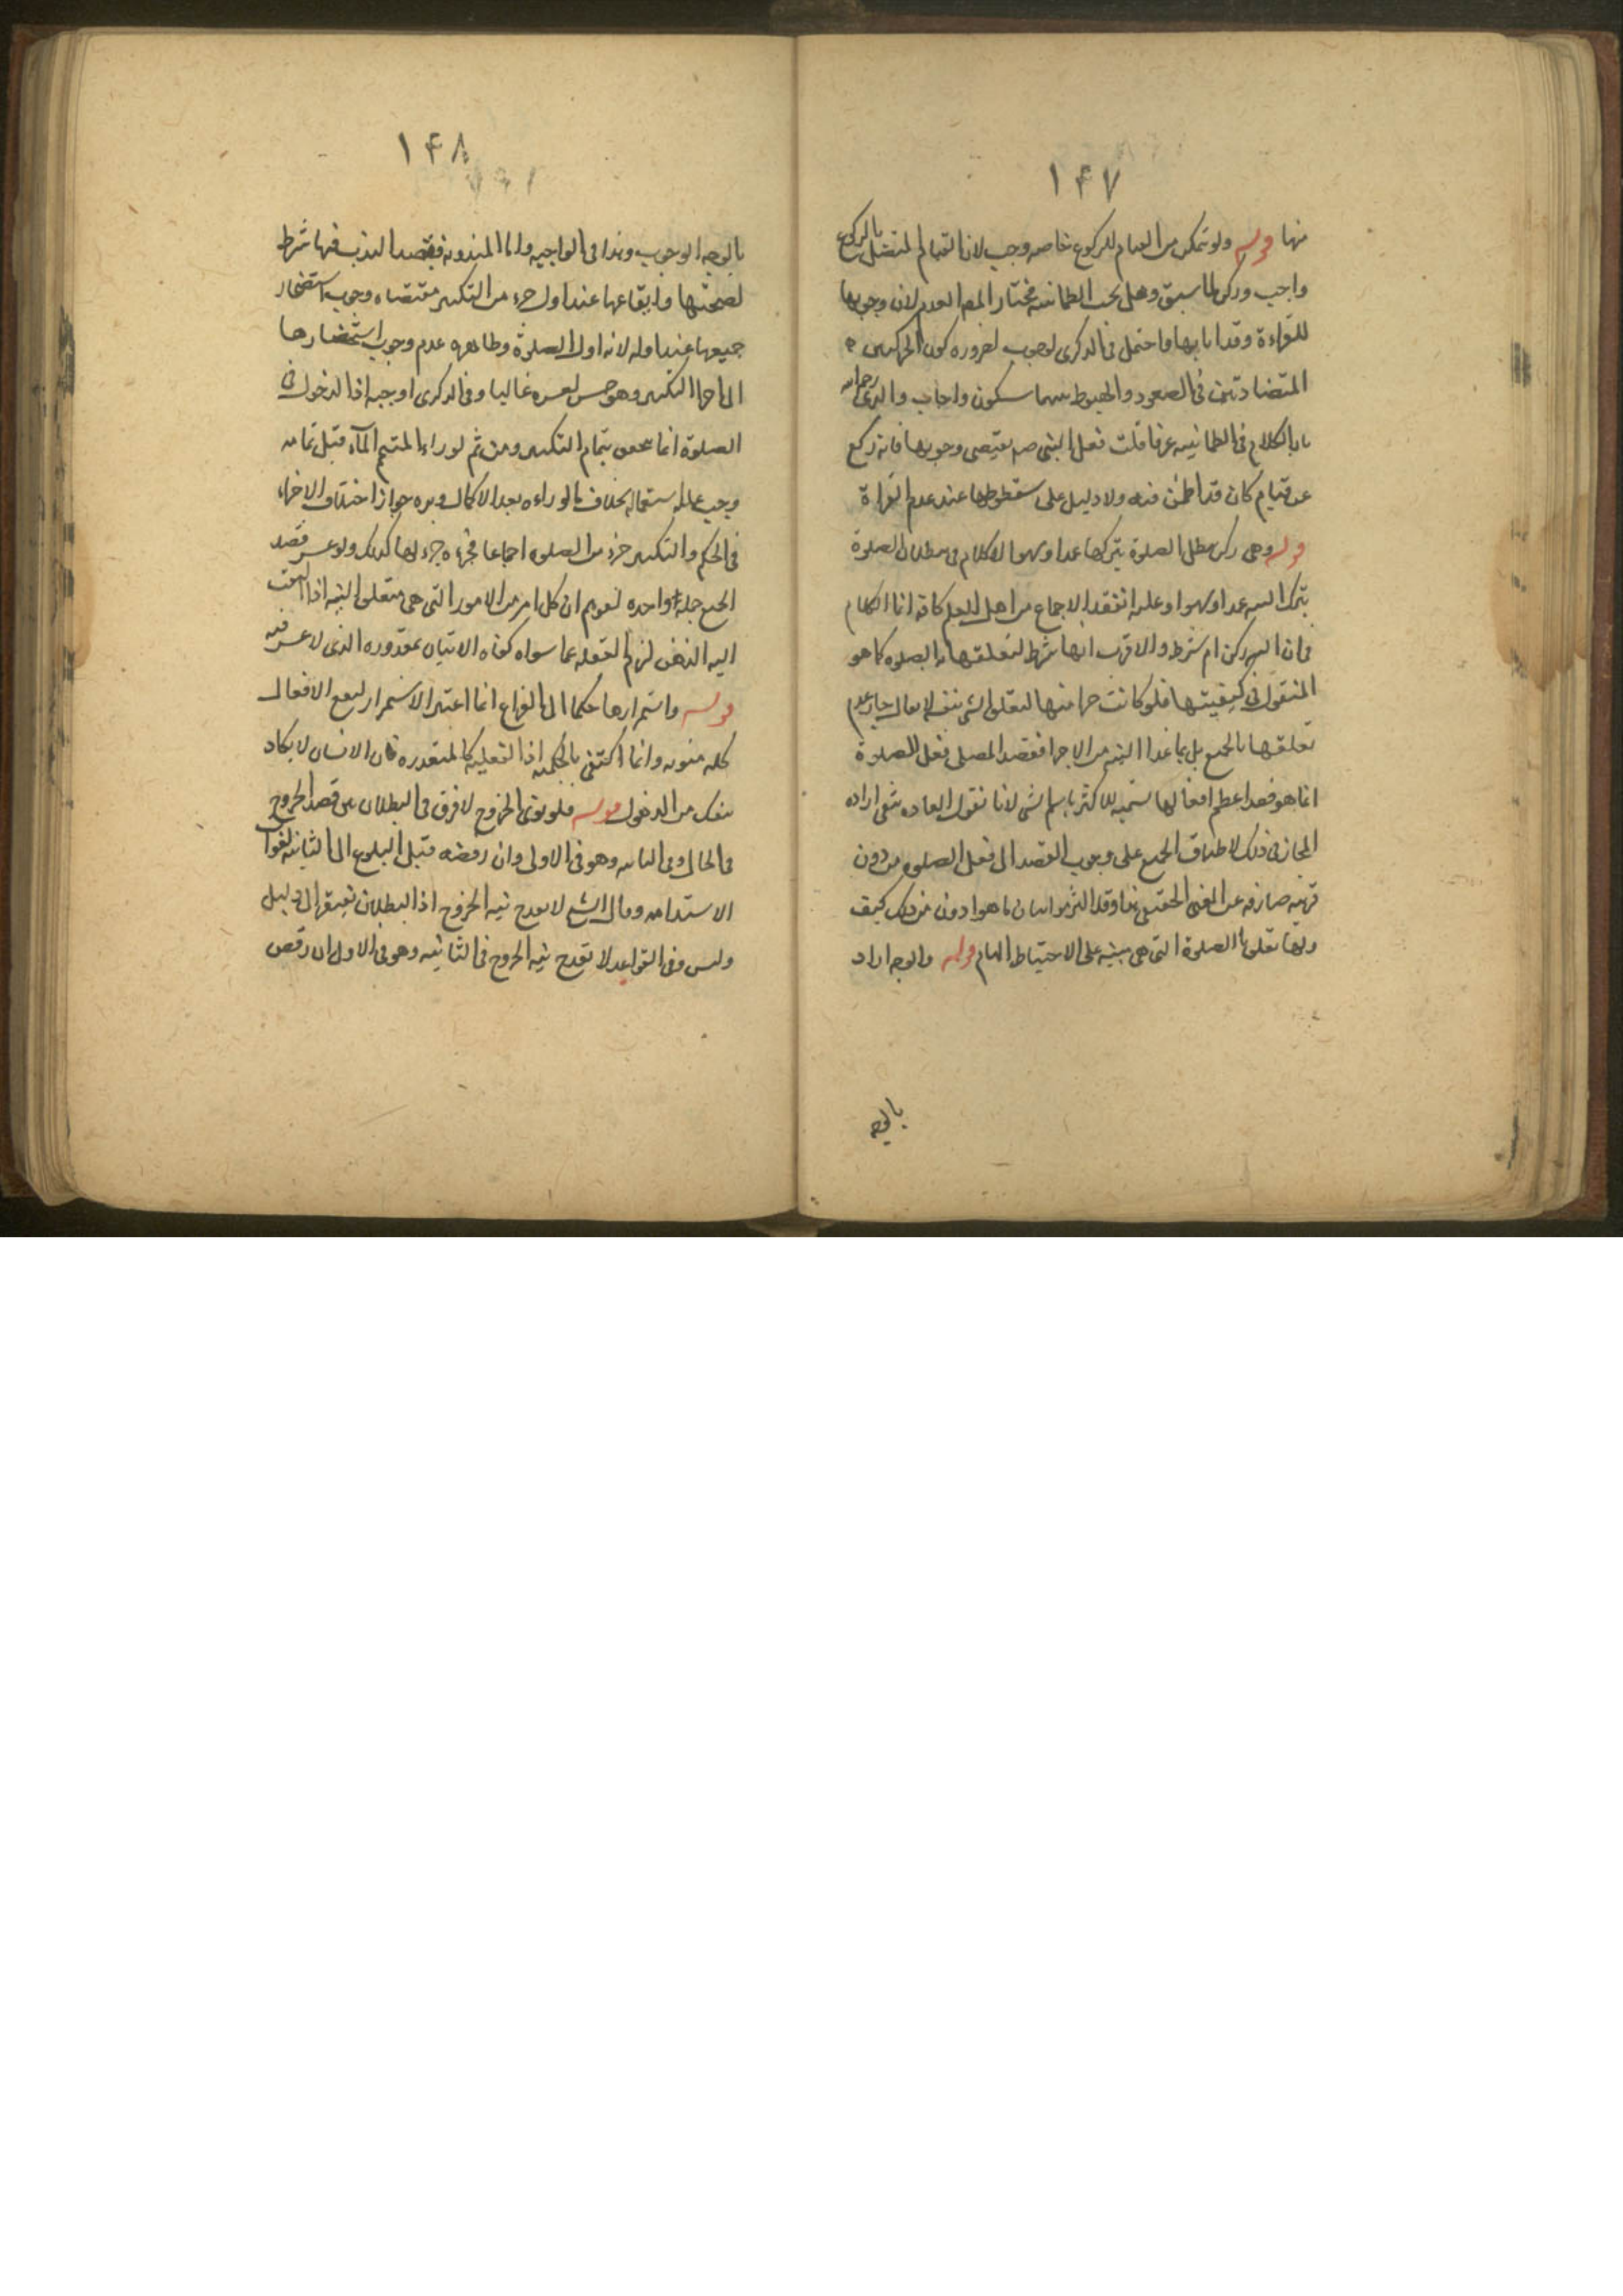 ١۴٧
منها قوله ولو تمكن من القيام للركوع خاصه وجب لان القيام المتصل بالركوع
واجب وركن لما سبق وهل يجب الطمانينه مختار المص العدم لان وجوبها
للقراءة وقد اتى بها واحتمل فى الذكرى الوجوب لضروره كون الحركتين
المتضادتين فى الصعود والهبوط بينهما سكون واجاب والدى رحمه الله
بان الكلام فى الطمانينه عرفا قلت فعل النبى صم يقتضى وجوبها فانه ركع
عن قيام كان قد اطمئن فيه ولا دليل على سقوطها عند عدم القراءة
قوله وهى ركن تبطل الصلوة بتركها عمدا وسهوا لا كلام فى بطلان الصلوة
بترك النيه عمدا وسهوا وعليه انعقد الاجماع من اهل العلم كافة انما الكلام
فى ان النيه ركن ام شرط والاقرب انها شرط لتعلقها بالصلوه كما هو
المنقول فى كيفيتها فلو كانت جزءا منها لتعلق الشئ بنفسه لا يقال جاز عدم
تعلقها بالجميع بل بما عدا النيه من الاجزا فقصد المصلى بفعل الصلوة
انما هو قصد اعظم افعالها تسميه للاكثر باسم الشئ لانا نقول العاده تنفى اراده
المجاز فى ذلك لاطباق الجميع على وجوب القصد الى فعل الصلوه من دون
قرينه صارفه عن المعنى الحقيقى هذا وقد التزموا بيان ما هو ادون من ذلك كيف
ولها تعلق بالصلوة التى هى مبنيه على الاحتياط التام قوله والوجه اراد
بالوجه
١۴٨
بالوجه الوجوب وهذا فى الواجبه واما المندوبة فيقصد الندب فيها شرط
لصحتها وايقاعها عند اول جزء من التكبير مقتضاه وجوب استحضار
جميعها عند اوله لانه اول الصلوة وظاهره عدم وجوب استحضارها
الى اخر التكبير وهو حسن لعسره غالبا وفى الذكرى اوجبه اذ الدخول فى
الصلوة انما يتحقق بتمام التكبير ومن ثم لو راى المتيمم الماء قبل تمامه
وجب عليه استعماله بخلاف ما لو راءه بعد الاكمال ويرده جواز اختلاف الاجزاء
فى الحكم والتكبير جزء من الصلوه اجماعا فجزءه جزء لها كذلك ولو عسر قصد
الجميع جملة واحده لتوهم ان كل امر من الامور التى هى متعلق النيه اذا التفت
اليه الذهن لزم الغفله عما سواه كفاه الاتيان بمقدوره الذى لا عسر فيه
قوله واستمرارها حكما الى الفراغ انما اعتبر الاستمرار ليقع الافعال
كله منويه وانما اكتفى بالحكميه اذ الفعليه كالمتعذره فان الانسان لا يكاد
ينفك من الذهول قوله فلو نوى الخروج لا فرق فى البطلان بين قصد الخروج
فى الحال وفى الثانيه وهو فى الاولى وان رفضه قبل البلوغ الى الثانيه لفوات
الاستدامه وقال الشيخ لا يقدح نيه الخروج اذ البطلان يفتقر الى دليل
وليس وفى القواعد لا تقدح نيه الخروج فى الثانيه وهو فى الاولى ان رفض